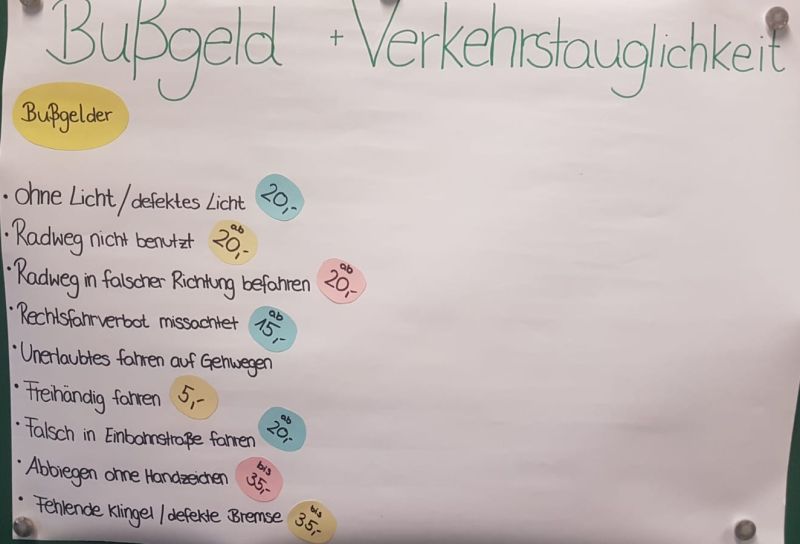 Bußgeld + Verkehrstauglichkeit
Bußgelder
• ohne Licht/defektes Licht 20,-
• Radweg nicht benutzt ab 20,-
• Radweg in falscher Richtung befahren ab 20,-
• Rechtsfahrverbot missachtet ab 15,-
• Unerlaubtes fahren auf Gehwegen
• Freihändig fahren 5,-
• Falsch in Einbahnstraße fahren ab 20,-
• Abbiegen ohne Handzeichen bis 35,-
• Fehlende Klingel/defekte Bremse bis 35,-